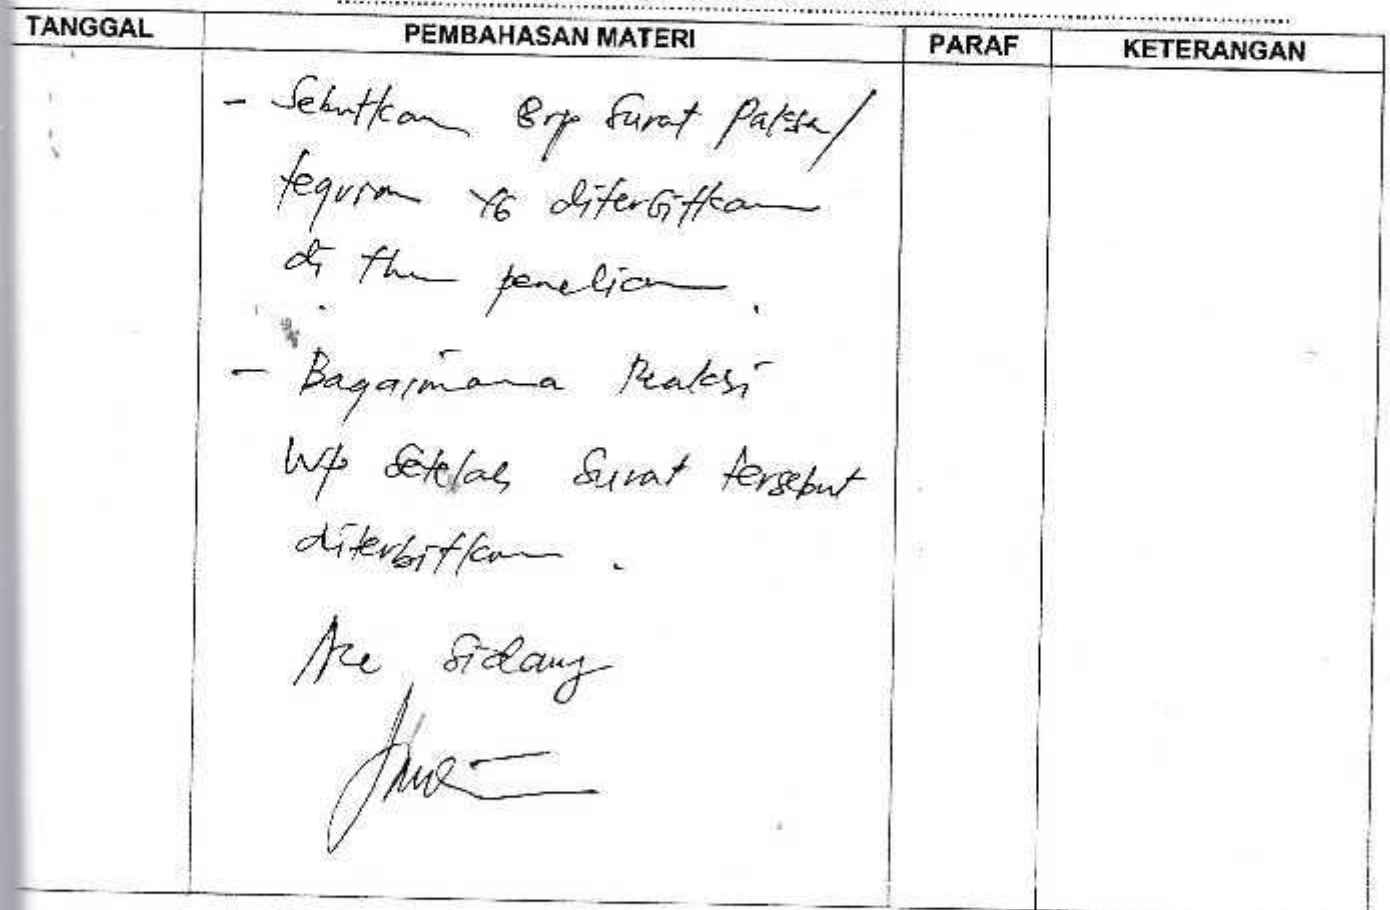 TANGGAL PEMBAHASAN MATERI PARAF KETERANGAN
- Sebutkan Brp Surat Paksa/
teguran YG diterbitkan
di thn penelian.
- Bagaimana Reaksi
Wp setelah Surat tersebut
diterbitkan.
Acc Sidang